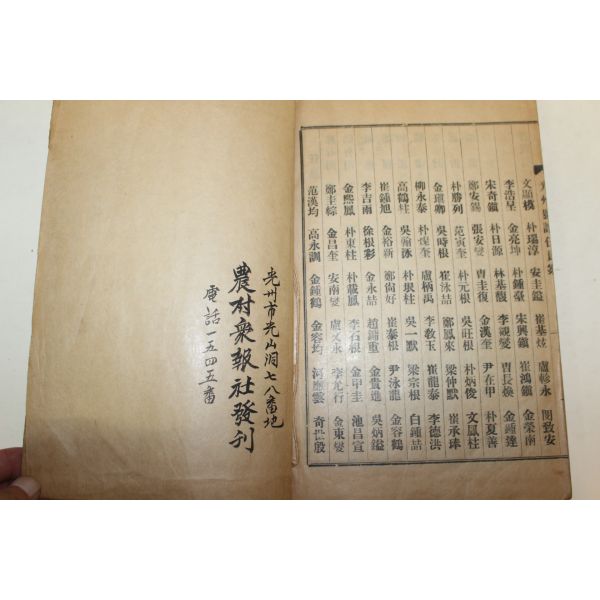 朴瑞淳 安圭鎰 崔基炫 盧軫永 閔致安
李浩呈 金亮坤 朴鍾臺 宋興鎭 崔鴻鎭 金榮南
宋奇鎭 朴日源 林基馥 李覲燮 曺長煥 金鍾達
鄭安錫 張安燮 曺圭復 金漢奎 尹在甲 朴夏善
朴勝列 范寅奎 朴元根 吳旺根 朴炳俊 文鳳柱
金瓊卿 吳時根 崔泳喆 鄭鳳來 梁仲默 崔承琫
柳永泰 朴燦奎 盧柄禹 李敎玉 崔龍泰 李德洪
高鶴柱 吳翰泳 朴珢柱 吳一默 梁宗根 白鍾喆
崔鍾旭 金裕新 鄭尙好 崔泰根 尹泳龍 金容鶴
李吉雨 徐根彩 金永喆 趙鍾重 金貴進 吳炳鎰
金熙鳳 朴東柱 朴載鳳 李石根 金甲圭 池昌宣
鄭圭綜 金昌奎 安南燮 盧文永 李光行 金東燮
范漢均 高永訓 金鍾鶴 金容均 河應雲 奇世殷
光州市光山洞七八番地
農村衆報社發刊
電話一五四五番